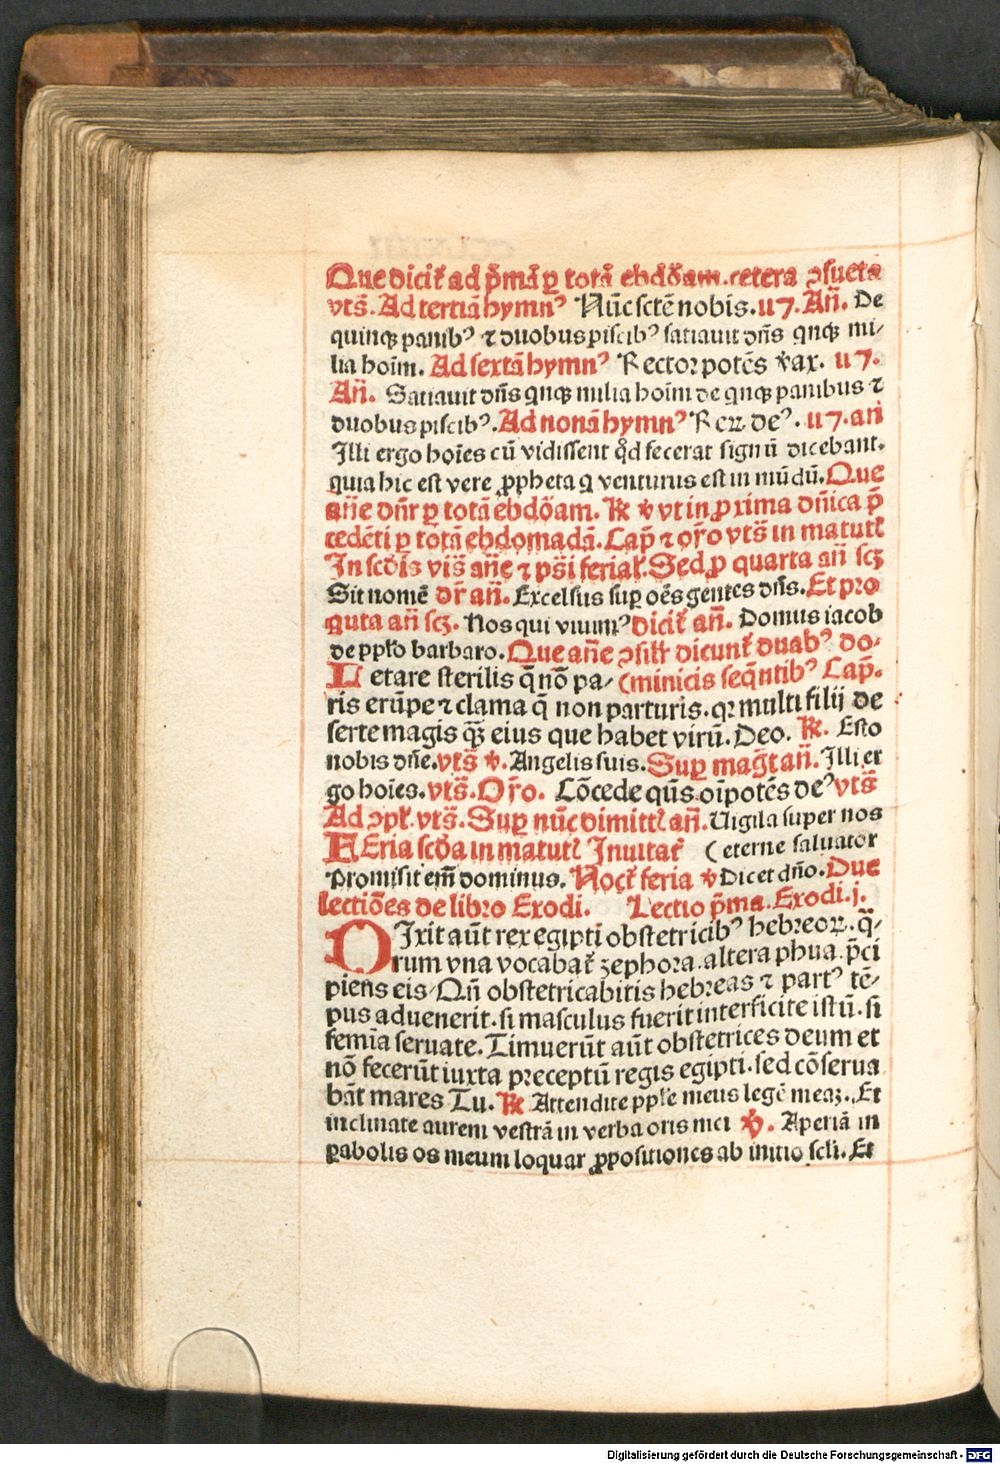 Que dicit᷑ ad p̄mā ꝑ totā ebdo̅am. cetera ꝯsueta
vts̄. Ad tertiā hymnꝰ Nūc sctē nobis. u7. An̄. De
quinqꝫ panibꝰ ⁊ duobus piscibꝰ satiauit dn̄s qnqꝫ mi⸗
lia hoīm. Ad sextā hymnꝰ Rector potēs v̄ax. u7.
An̄. Satiauit dn̄s qnqꝫ milia hoīm de qnqꝫ panibus ⁊
duobus piscibꝰ. Ad nonā hymnꝰ Reꝝ deꝰ. u7. an̄
Illi ergo hoīes cū vidissent qd̄ fecerat signū dicebant.
quia hic est vere ꝓpheta q venturus est in mūdū. Que
an̄e dn̄r ꝑ totā ebdo̅am. ℟ ℣ vt in proxima dn̄ica p̄
cedēti ꝑ totā ebdomadā. Cap̄ ⁊ or̄o vts̄ in matut᷑
In scd̄is vis̄ an̄e ⁊ ps̄i ferial᷑. Sed pro quarta an̄ scꝫ
Sit nomē dr̄ an̄. Excelsus suꝑ oēs gentes dn̄s. Et pro
quta an̄ scꝫ. Nos qui viuimꝰ dicit᷑ an̄. Domus iacob
de pplo barbaro. Que an̄e ꝯsil᷑r dicunt᷑ duabꝰ do⸗
Letare sterilis q̄ nō pa⸗ (minicis seqn̄tibꝰ Cap̄.
ris erūpe ⁊ clama q̄ non parturis. qꝛ multi filij de
serte magis qꝫ eius que habet virū. Deo. ℟. Esto
nobis dn̄e. vts̄ ℣. Angelis suis. Suꝑ mag̅t an̄. Illi er
go hoīes. vts̄. Or̄o. Cōcede qūs oīpotēs deꝰ vts̄
Ad ꝯpl᷑. vts̄. Suꝑ nūc dimitt᷑ an̄. Uigila super nos
FEria scd̄a in matut᷑ Inuitat᷑ (eterne saluator
Promisit em̄ dominus. Noct᷑ feria ℣ Dicet dn̄o. Due
lectiōes de libro Exodi. Lectio p̄ma. Exodi. j.
DIxit aūt rex egipti obstetricibꝰ hebreoꝝ. q̄⸗
rum vna vocabat᷑ zephora. altera phua. p̄ci
piens eis⸗ Qn̄ obstetricabitis hebreas ⁊ partꝰ tē⸗
pus aduenerit. si masculus fuerit interficite istū. si
femīa seruate. Timuerūt aūt obstetrices deum et
nō fecerūt iuxta preceptū regis egipti. sed cōserua
bāt mares Tu. ℟ Attendite pple meus legē meaꝫ. Et
inclinate aurem vestrā in verba oris mei ℣. Aperiā in
ꝑabolis os meum loquar ꝓpositiones ab initio scli. Et
Digitalisierung gefördert durch die Deutsche Forschungsgemeinschaft - DFG